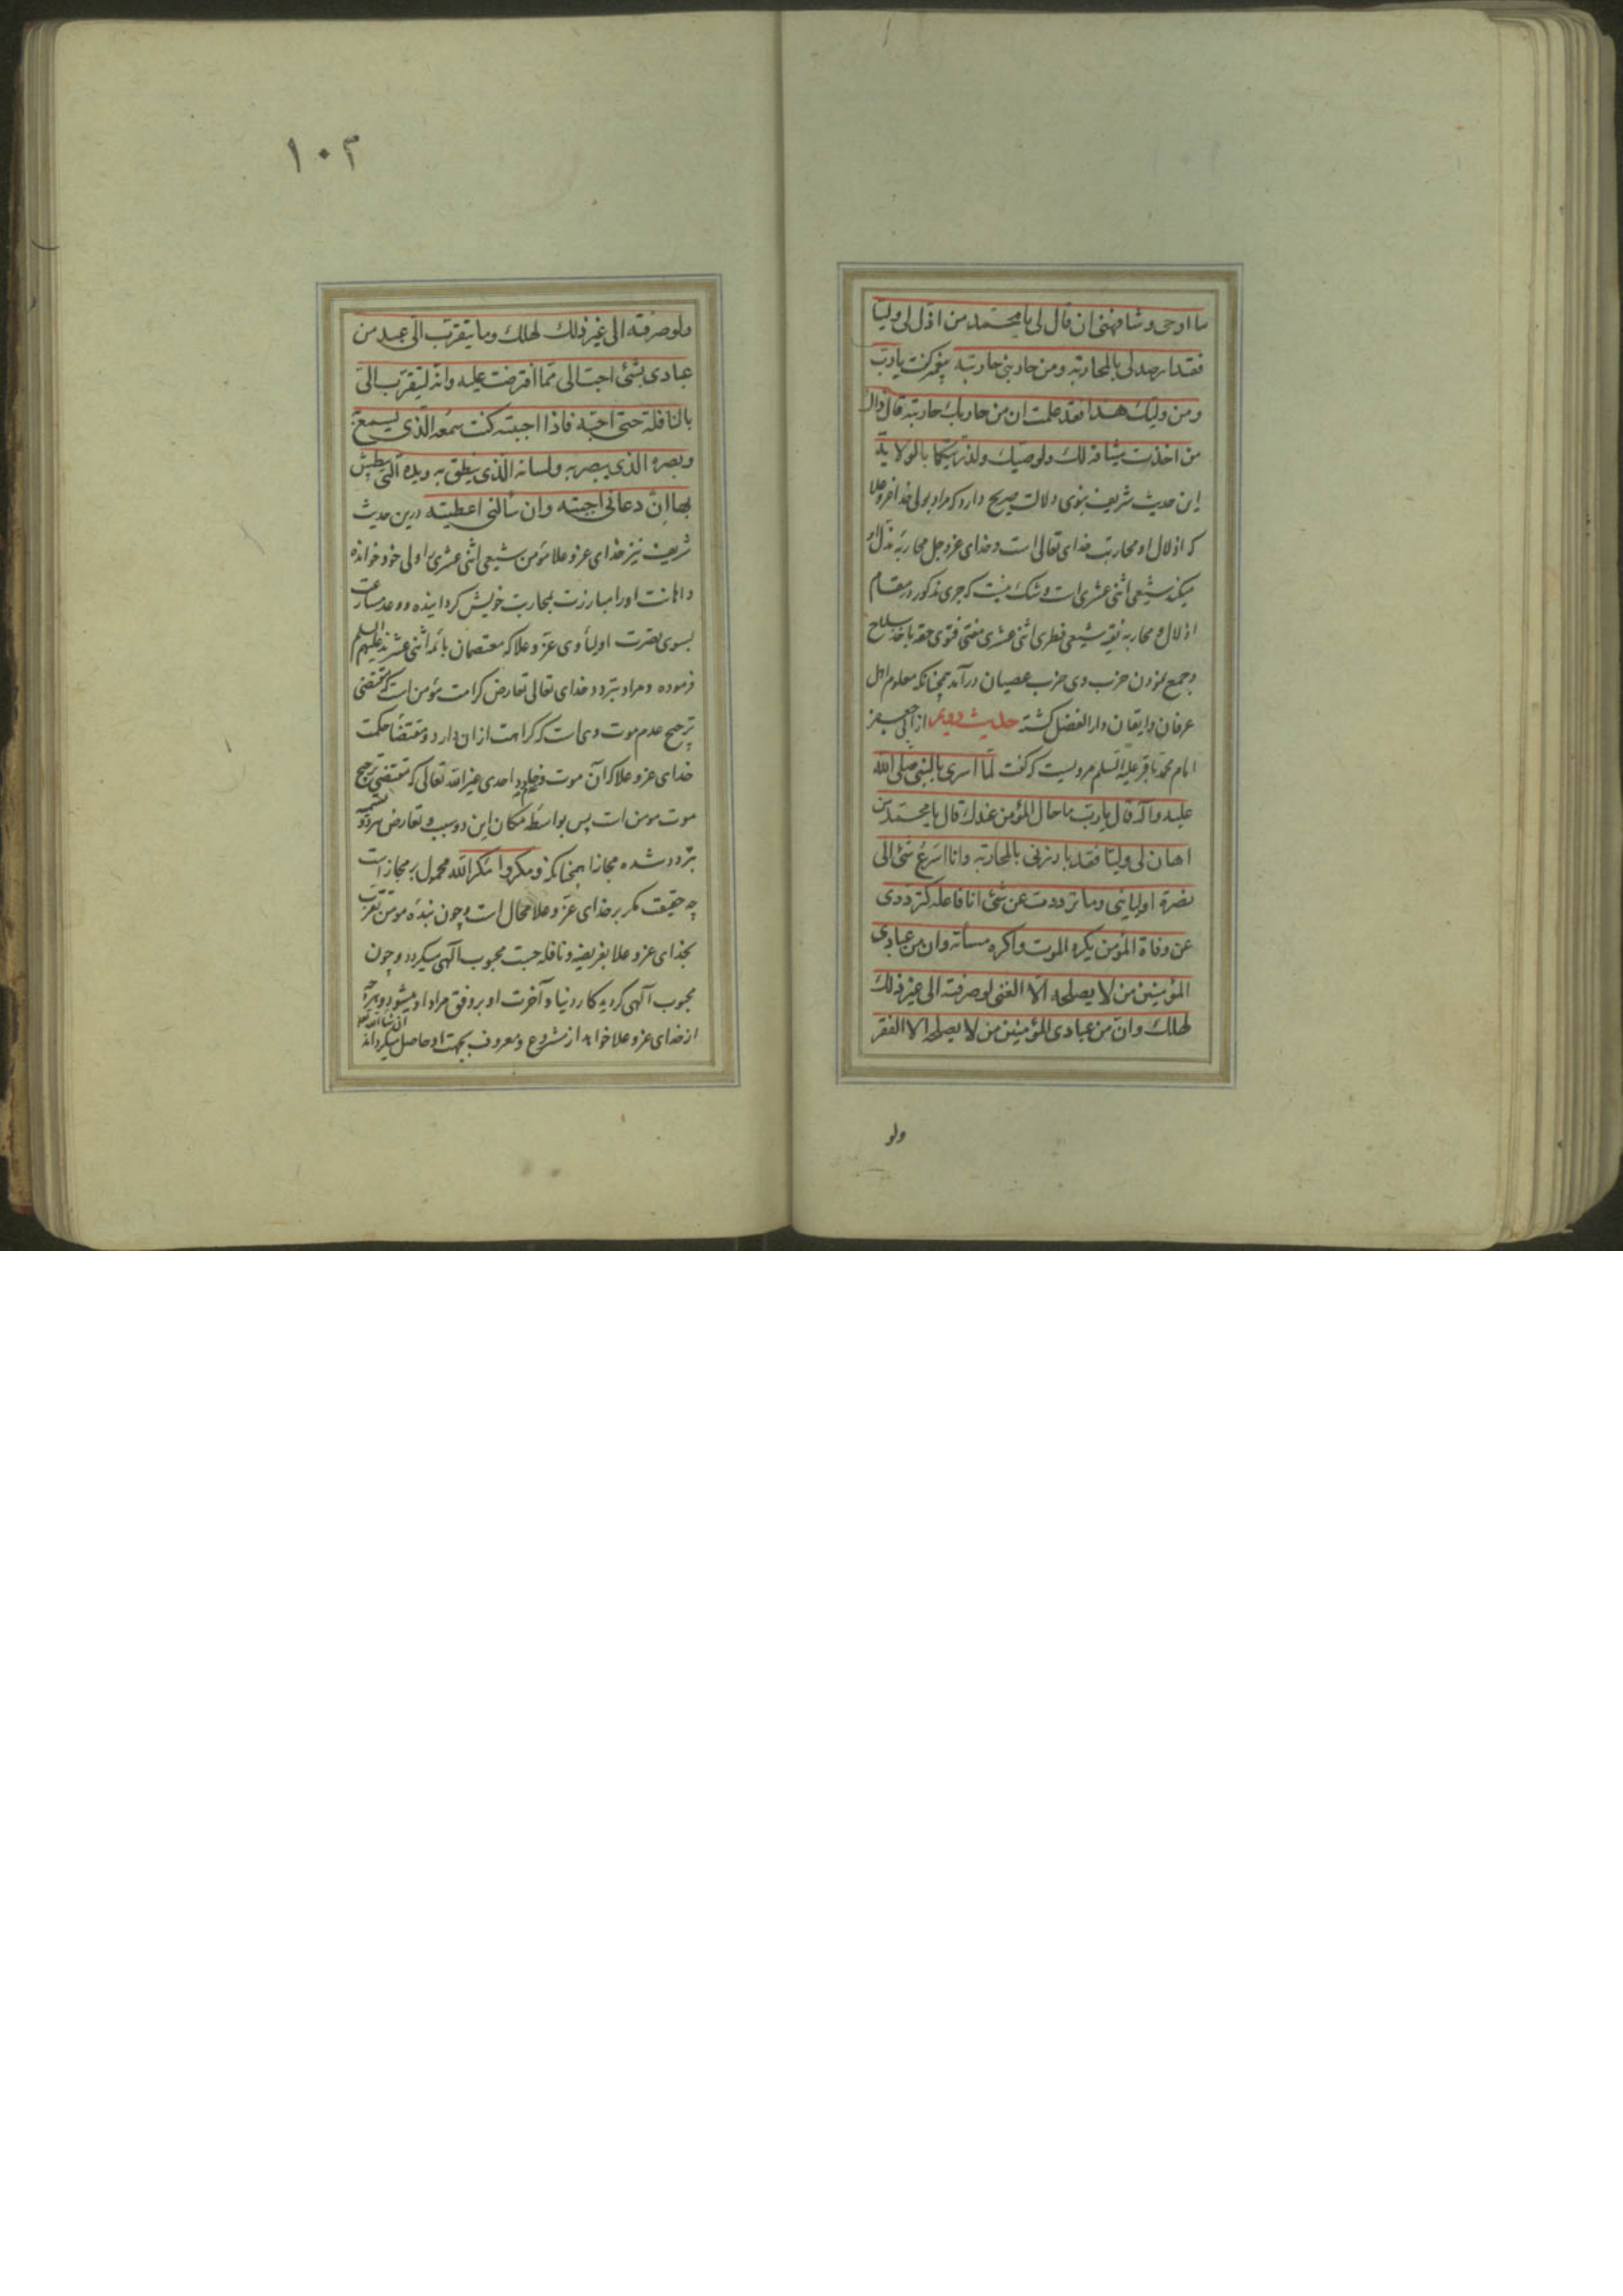 ما اوحی و شافهنی ان قال لی یا محمد من اذل لی ولیا
فقد ارصد لی بالمحاربة و من حاربنی حاربته پیغمبر گفت یا رب
و من ولیک هذا فقد علمت ان من حاربک حاربته قال ذاک
من اخذت میثاقه لک و لوصیک و لذریتکما بالولایة
این حدیث شریف نبوی دلالت صریح دارد که مراد بولی خدا عز و علا
که اذلال او محاربت خدای تعالی است و خدای عز و جل محاربه
میکند شیعی اثنی عشری است و شک نیست که جری مذکور در مقام
اذلال و محاربه فقیه شیعی فطری اثنی عشری مفتی فتوی حقه باخذ سلاح
و جمع نمودن حزب وی حزب عصیان در آمد چنانکه معلوم اهل
عرفان و ایقان دار الفضل گشته حدیث دویم از ابی جعفر
امام محمد باقر علیه السلم مرویست که گفت لما اسری بالنبی صلی الله
علیه و آله قال یا رب ما حال المؤمن عندک قال یا محمد من
اهان لی ولیا فقد بارزنی بالمحاربة و انا اسرع شئ الی
نصرة اولیائی و ما ترددت عن شئ انا فاعله کترددی
عن وفاة المؤمن یکره الموت و اکره مسأته و ان من عبادی
المؤمنین من لا یصلحه الا الغنی لو صرفته الی غیر ذلک
لهلک و ان من عبادی المؤمنین من لا یصلحه الا الفقر
ولو
۱۰۲
ولو صرفته الی غیر ذلک لهلک و ما یتقرب الی عبد من
عبادی بشئ احب الی مما افترضت علیه و انه لیتقرب الی
بالنافلة حتی احبه فاذا احببته کنت سمعه الذی یسمع به
و بصره الذی یبصر به و لسانه الذی ینطق به و یده التی یبطش
بها ان دعانی اجبته و ان سألنی اعطیته درین حدیث
شریف نیز خدای عز و علا مؤمن شیعی اثنی عشری را ولی خود خوانده
و اهانت او را مبارزت بمحاربت خویش گردانیده و وعد مسارعت
بسوی نصرت اولیاء وی عز و علا که معتصمان بائمه اثنی عشرند علیهم السلم
فرموده و مراد بتردد خدای تعالی تعارض کرامت مؤمن است که مقتضی
ترجیح عدم موت وی است که کراهت از ان دارد و مقتضاء حکمت
خدای عز و علا که آن موت و عدم خلود احدی غیر الله تعالی که مقتضی ترجیح
موت مومن است پس بواسطه مکان این دو سبب و تعارض هر دو تسمیه
بتردد شده مجازا همچنانکه و مکروا و مکر الله محمول بر مجاز است
چه حقیقت مکر بر خدای عز و علا محال است و چون بنده مومن تقرب
بخدای عز و علا بفریضه و نافله جست محبوب آلهی میگردد و چون
محبوب آلهی گردید کار دنیا و آخرت او بر وفق مراد او میشود و هر چه
از خدای عز و علا خواهد از مشروع و معروف بجهت او حاصل میگرداند ان شاء الله تعالی